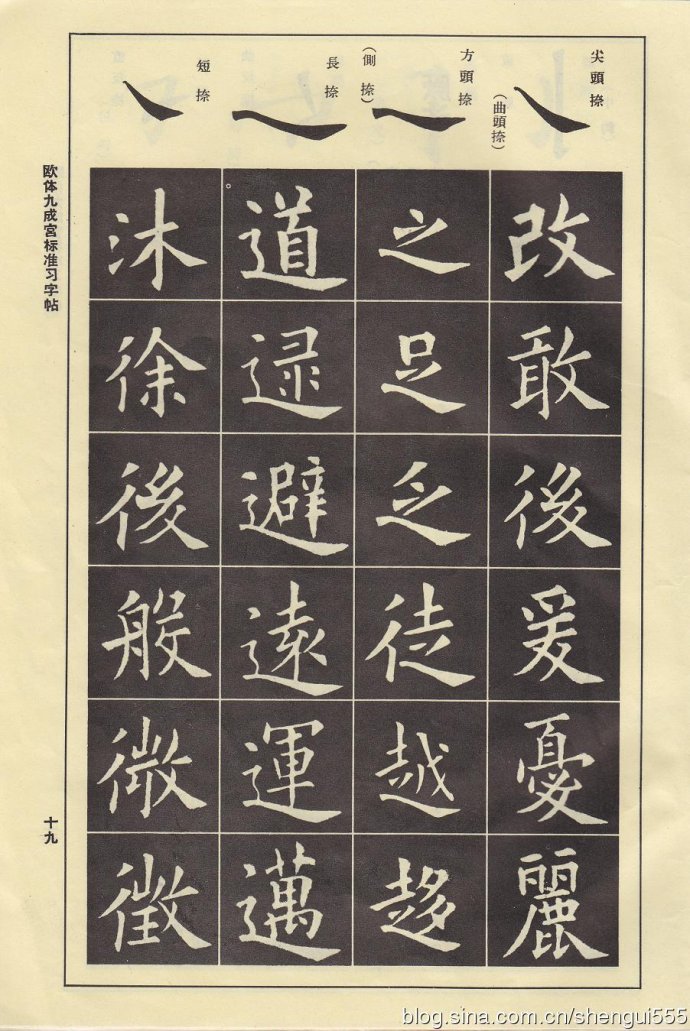 尖頭捺
(曲頭捺)
方頭捺
(側捺)
長捺
短捺
改敢後爰憂麗
之足乏徒越趍
道逯避遠運邁
沐徐後般微徵
欧体九成宫标准习字帖
十九
blog.sina.com.cn/shengui555